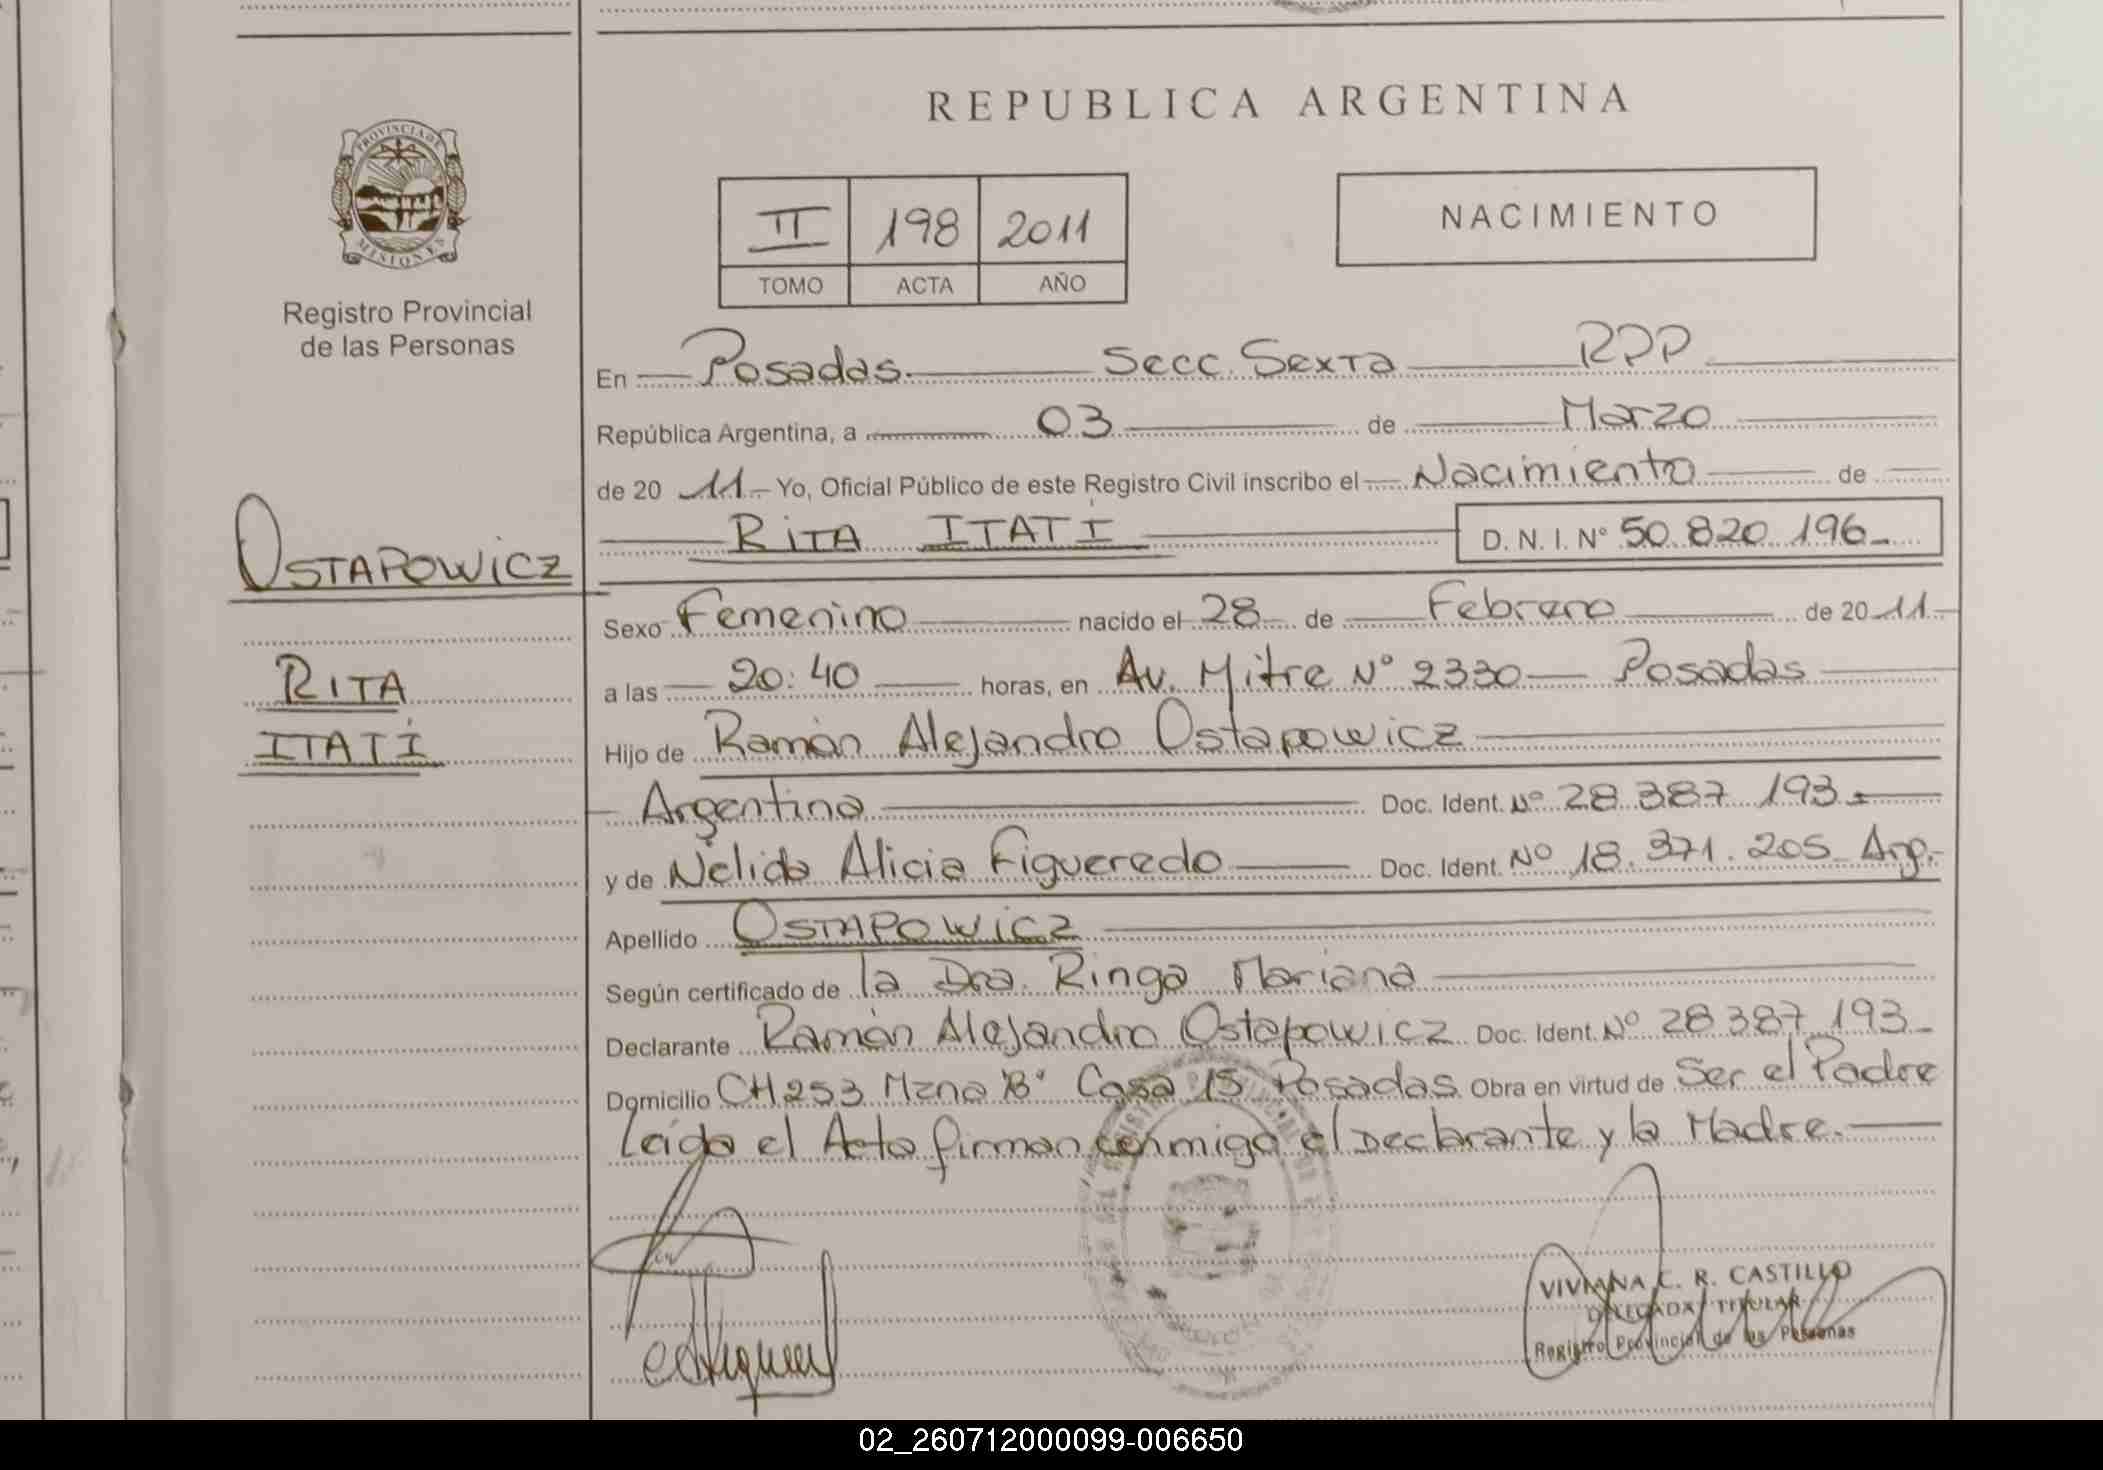 REPUBLICA ARGENTINA
PROVINCIA DE
MISIONES
Registro Provincial
de las Personas
II 198 2011
TOMO ACTA AÑO
NACIMIENTO
En Posadas Secc. Sexta RPP
República Argentina, a 03 de Marzo
de 20 11 Yo, Oficial Público de este Registro Civil inscribo el Nacimiento de
RITA ITATÍ D. N. I. Nº 50.820.196
OSTAPOWICZ
RITA
ITATÍ
Sexo Femenino nacido el 28 de Febrero de 20 11
a las 20:40 horas, en Av. Mitre Nº 2330 Posadas
Hijo de Ramón Alejandro Ostapowicz
Argentina Doc. Ident. Nº 28.387.193
y de Nélida Alicia Figueredo Doc. Ident. Nº 18.371.205 Arg.
Apellido OSTAPOWICZ
Según certificado de la Dra. Ringa Mariana
Declarante Ramón Alejandro Ostapowicz Doc. Ident. Nº 28.387.193
Domicilio CH 253 Mzna "B" Casa 15 Posadas Obra en virtud de Ser el Padre
Leída el Acta firman conmigo el Declarante y la Madre.
VIVIANA C. R. CASTILLO
DELEGADA TITULAR
Registro Provincial de las Personas
02_260712000099-006650